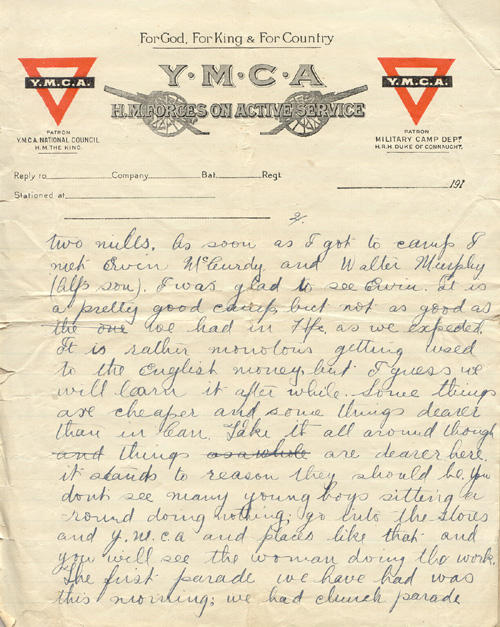 For God, For King & For Country
Y.M.C.A.
Y·M·C·A
Y.M.C.A.
H.M. FORCES ON ACTIVE SERVICE
PATRON
Y.M.C.A. NATIONAL COUNCIL
H.M. THE KING.
PATRON
MILITARY CAMP DEPT.
H.R.H. DUKE OF CONNAUGHT.
Reply to Company Bat. Regt.
Stationed at 191
2.
two miles. As soon as I got to camp I
met Ervin McCurdy and Walter Murphy
(Alfs son). I was glad to see Ervin. It is
a pretty good camp but not as good as
the one we had in Hfx as we expected.
It is rather monotous getting used
to the English money but I guess we
will learn it after while. Some things
are cheaper and some things dearer
than in Can. Take it all around though
and things as a whole are dearer here.
it stands to reason they should be. You
dont see many young boys sitting a
-round doing nothing; go into the stores
and Y.M.C.A and places like that and
you will see the woman doing the work.
The first parade we have had was
this morning; we had church parade